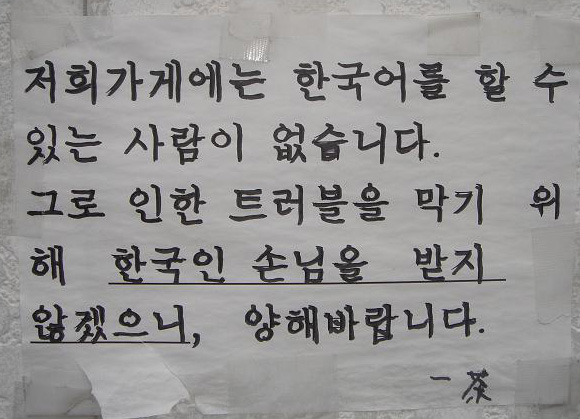 저희가게에는 한국어를 할 수
있는 사람이 없습니다.
그로 인한 트러블을 막기 위
해 한국인 손님을 받지
않겠으니, 양해바랍니다.
一茶